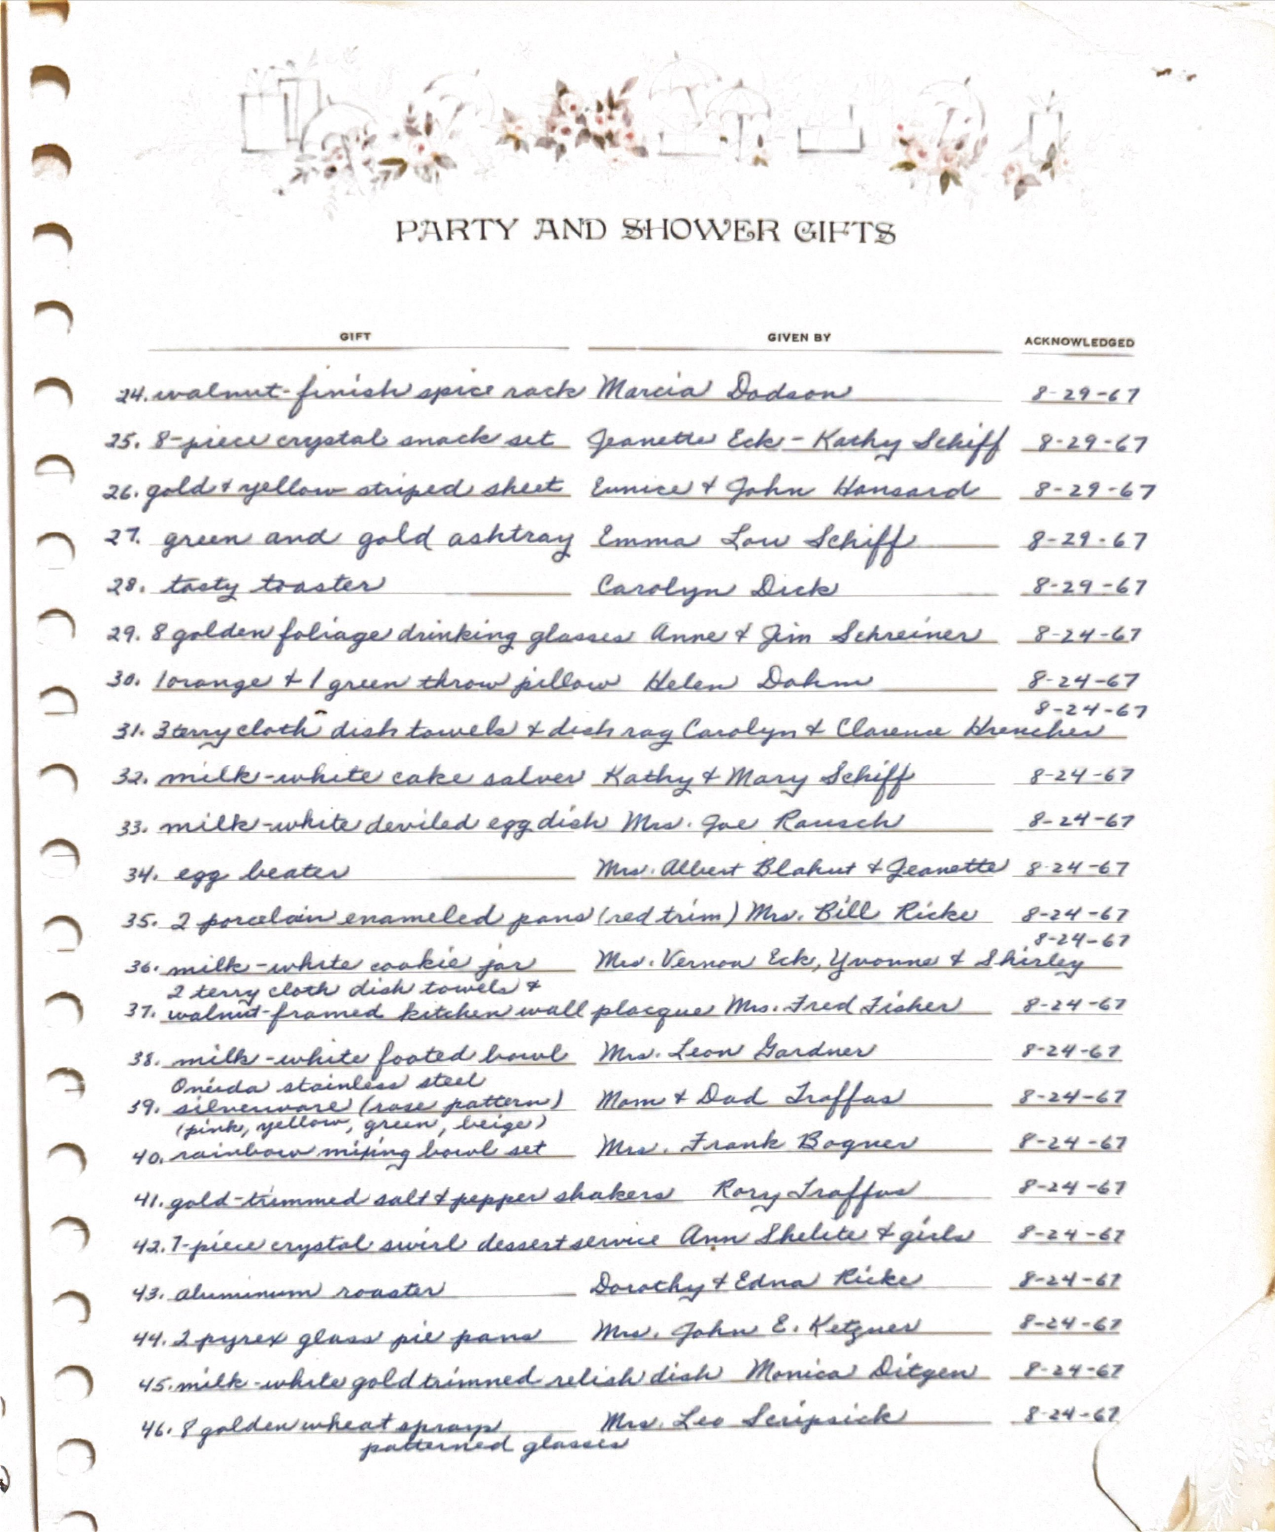 PARTY AND SHOWER GIFTS
GIFT GIVEN BY ACKNOWLEDGED
24. walnut-finish spice rack Marcia Dodson 8-29-67
25. 8-piece crystal snack set Jeanette Eck - Kathy Schiff 8-29-67
26. gold & yellow striped sheet Eunice & John Hansard 8-29-67
27. green and gold ashtray Emma Lou Schiff 8-29-67
28. tasty toaster Carolyn Dick 8-29-67
29. 8 golden foliage drinking glasses Anne & Jim Schreiner 8-24-67
30. 1 orange & 1 green throw pillow Helen Dohm 8-24-67
8-24-67
31. 3 terry cloth dish towels & dish rag Carolyn & Clarence Hrencher
32. milk-white cake salver Kathy & Mary Schiff 8-24-67
33. milk-white deviled egg dish Mrs. Joe Rausch 8-24-67
34. egg beater Mrs. Albert Blahut & Jeanette 8-24-67
35. 2 porcelain enameled pans (red trim) Mrs. Bill Ricke 8-24-67
8-24-67
36. milk-white cookie jar Mrs. Vernon Eck, Yvonne & Shirley
2 terry cloth dish towels &
37. walnut-framed kitchen wall placque Mrs. Fred Fisher 8-24-67
38. milk-white footed bowl Mrs. Leon Gardner 8-24-67
Oneida stainless steel
39. silverware (rose pattern) Mom & Dad Traffas 8-24-67
(pink, yellow, green, beige)
40. rainbow mixing bowl set Mrs. Frank Bogner 8-24-67
41. gold-trimmed salt & pepper shakers Rory Traffas 8-24-67
42. 7-piece crystal swirl dessert service Ann Shelite & girls 8-24-67
43. aluminum roaster Dorothy & Edna Ricke 8-24-67
44. 2 pyrex glass pie pans Mrs. John E. Ketzner 8-24-67
45. milk-white gold trimmed relish dish Monica Ditgen 8-24-67
46. 8 golden wheat sprays Mrs. Leo Scripsick 8-24-67
patterned glasses